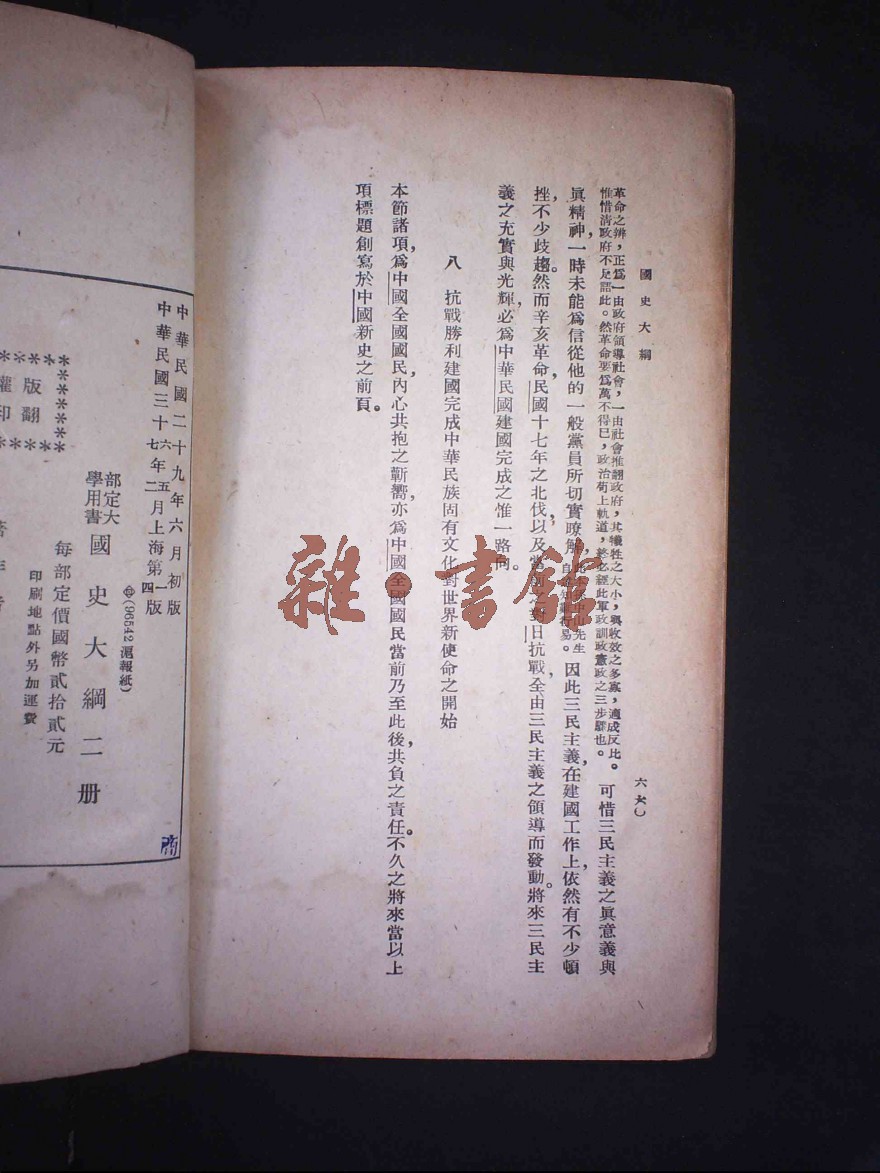 國史大綱
六六〇
革命之辨，正爲一由政府領導社會，一由社會推翻政府，其犧牲之大小，與收效之多寡，適成反比。
惟惜清政府不足語此。然革命要爲萬不得已，政治苟上軌道，終必經此軍政訓政憲政之三步驟也。
可惜三民主義之眞意義與
眞精神，一時未能爲信從他的一般黨員所切實瞭解，
先生
因此三民主義，在建國工作上，依然有不少頓
挫，不少歧趨。然而辛亥革命，民國十七年之北伐，以及當前之對日抗戰，全由三民主義之領導而發動。將來三民主
義之充實與光輝，必爲中華民國建國完成之惟一路向。
八　抗戰勝利建國完成中華民族固有文化對世界新使命之開始
本節諸項，爲中國全國國民，內心共抱之蘄嚮，亦爲中國全國國民當前乃至此後共負之責任。不久之將來當以上
項標題創寫於中國新史之前頁。
中華民國二十九年六月初版
中華民國三十六年五月上海第一版
七 二 四
(96542滬報紙)
部定大學用書
國史大綱二册
每部定價國幣貳拾貳元
印刷地點外另加運費
版
翻
權
印
商
雜·書館